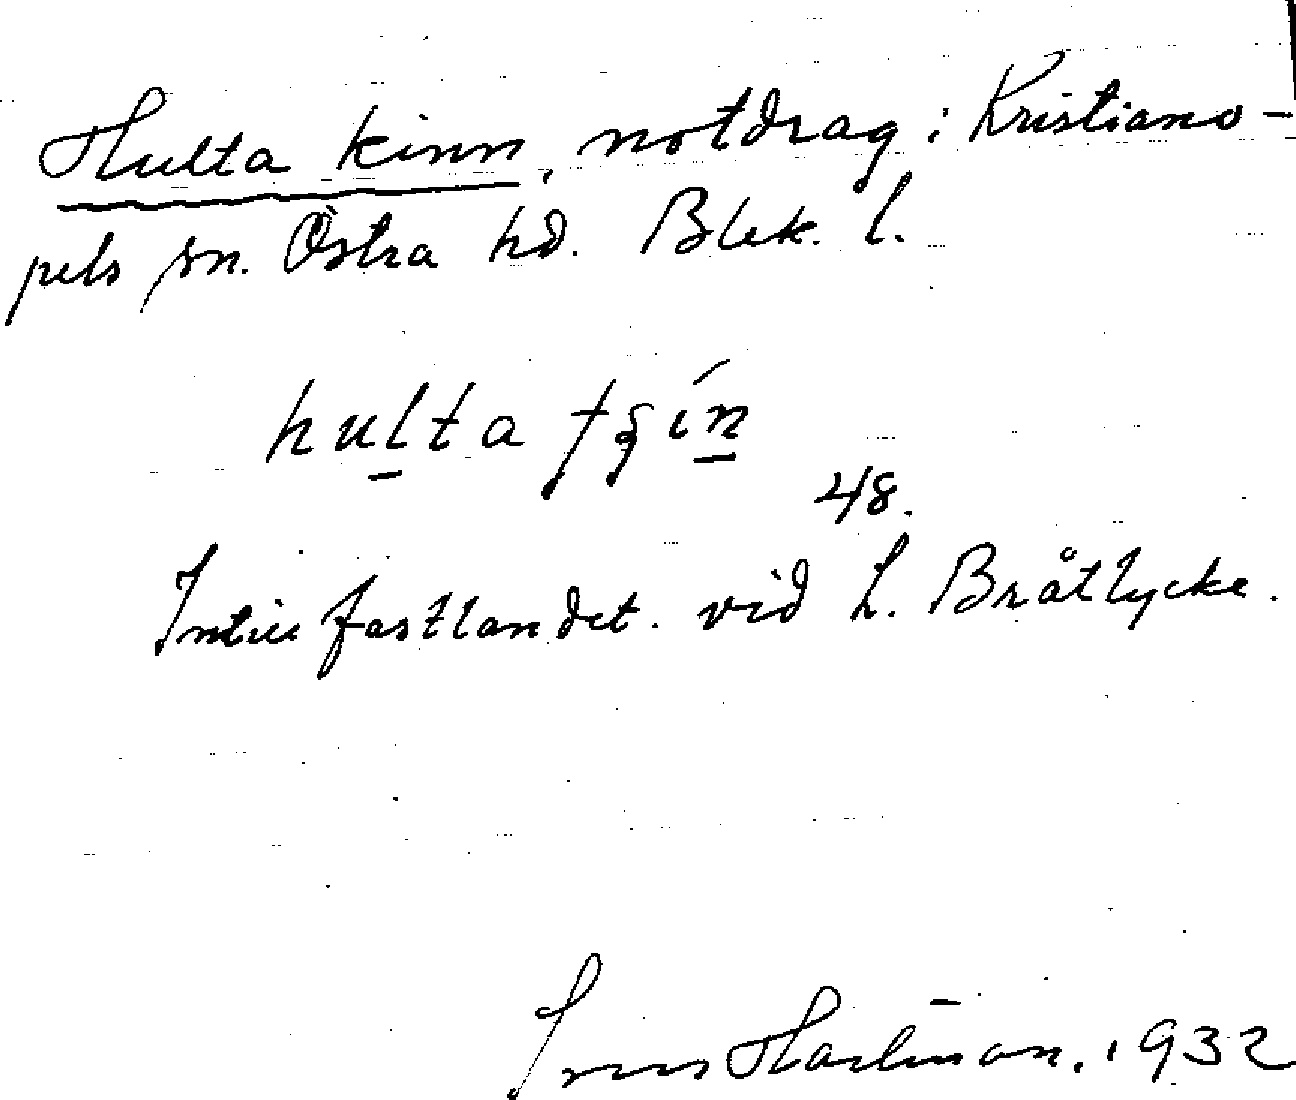 Hulta kinn, notdrag i Kristiano-
pels sn. Östra hd. Blek. l.
hulta tʂín
48.
Intill fastlandet. vid L. Bråtlycke.
Hartman. 1932